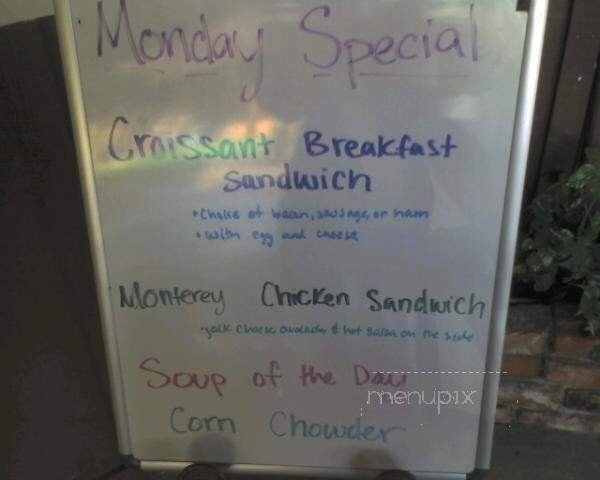 Monday Special
Croissant Breakfast
Sandwich
• Choice of bacon, sausage, or ham
• with egg and cheese
Monterey Chicken Sandwich
· jack cheese avocado & hot salsa on the side
Soup of the Day
menupix
Corn Chowder